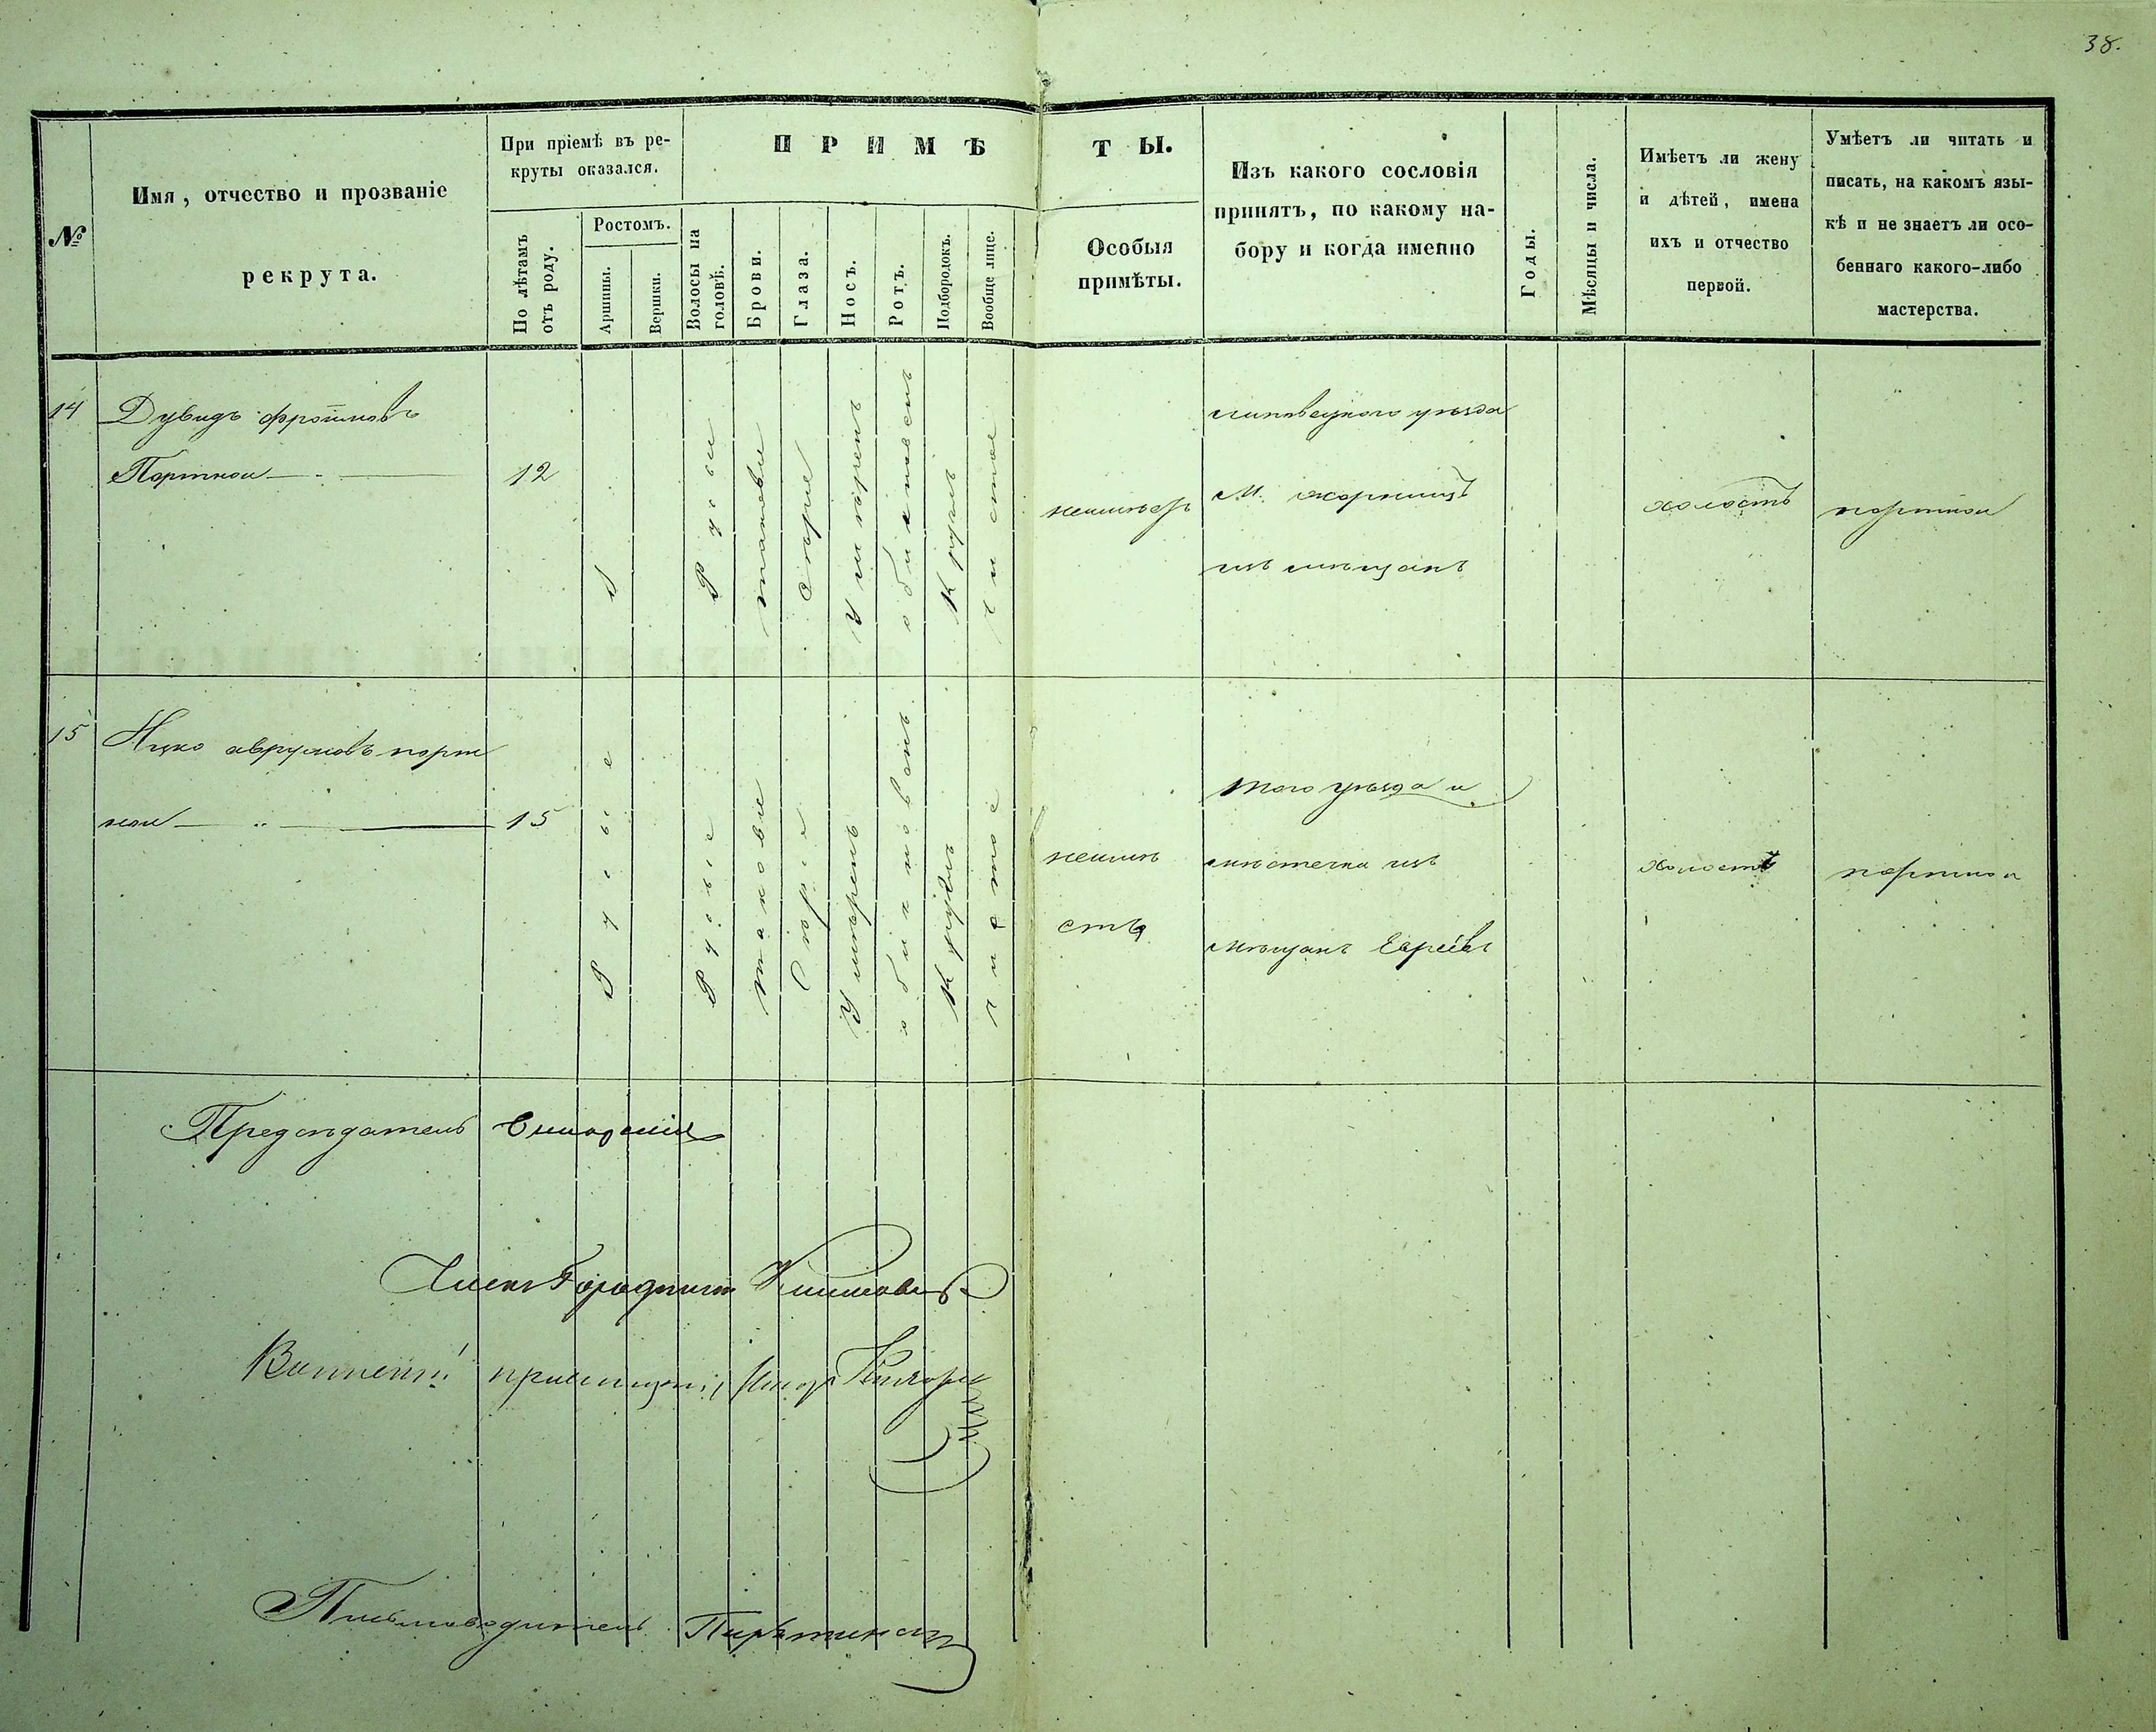 38.
№
Имя, отчество и прозваніе
рекрута.
При пріемѣ въ ре-
круты оказался.
По лѣтамъ
отъ роду.
Ростомъ.
Аршины.
Вершки.
П Р И М Ѣ
Т Ы.
Волосы на
головѣ.
Брови.
Глаза.
Носъ.
Ротъ.
Подбородокъ.
Вообще лице.
Особыя
примѣты.
Изъ какого сословія
принятъ, по какому на-
бору и когда именно
Годы.
Мѣсяцы и числа.
Имѣетъ ли жену
и дѣтей, имена
ихъ и отчество
первой.
Умѣетъ ли читать и
писать, на какомъ язы-
кѣ и не знаетъ ли осо-
беннаго какого-либо
мастерства.
14
Дувидъ фроимовъ
Портной
12
Русыи
таковые
Сѣрые
Умѣренъ
обикновенъ
Круглъ
чистое
липовецкого уѣзда
м.
изъ мѣщанъ
холостъ
портной
15
Ицко аврумовъ порт
ной
15
Русые
Русые
таковые
Сѣрые
Умѣренъ
обикновенъ
Круглъ
чистое
неимѣ
етъ
того уѣзда и
мѣстечка изъ
мѣщанъ Евреевъ
холостъ
портной
Предсѣдатель
Членъ Городничій
Военный пріемщикъ
Письмоводитель